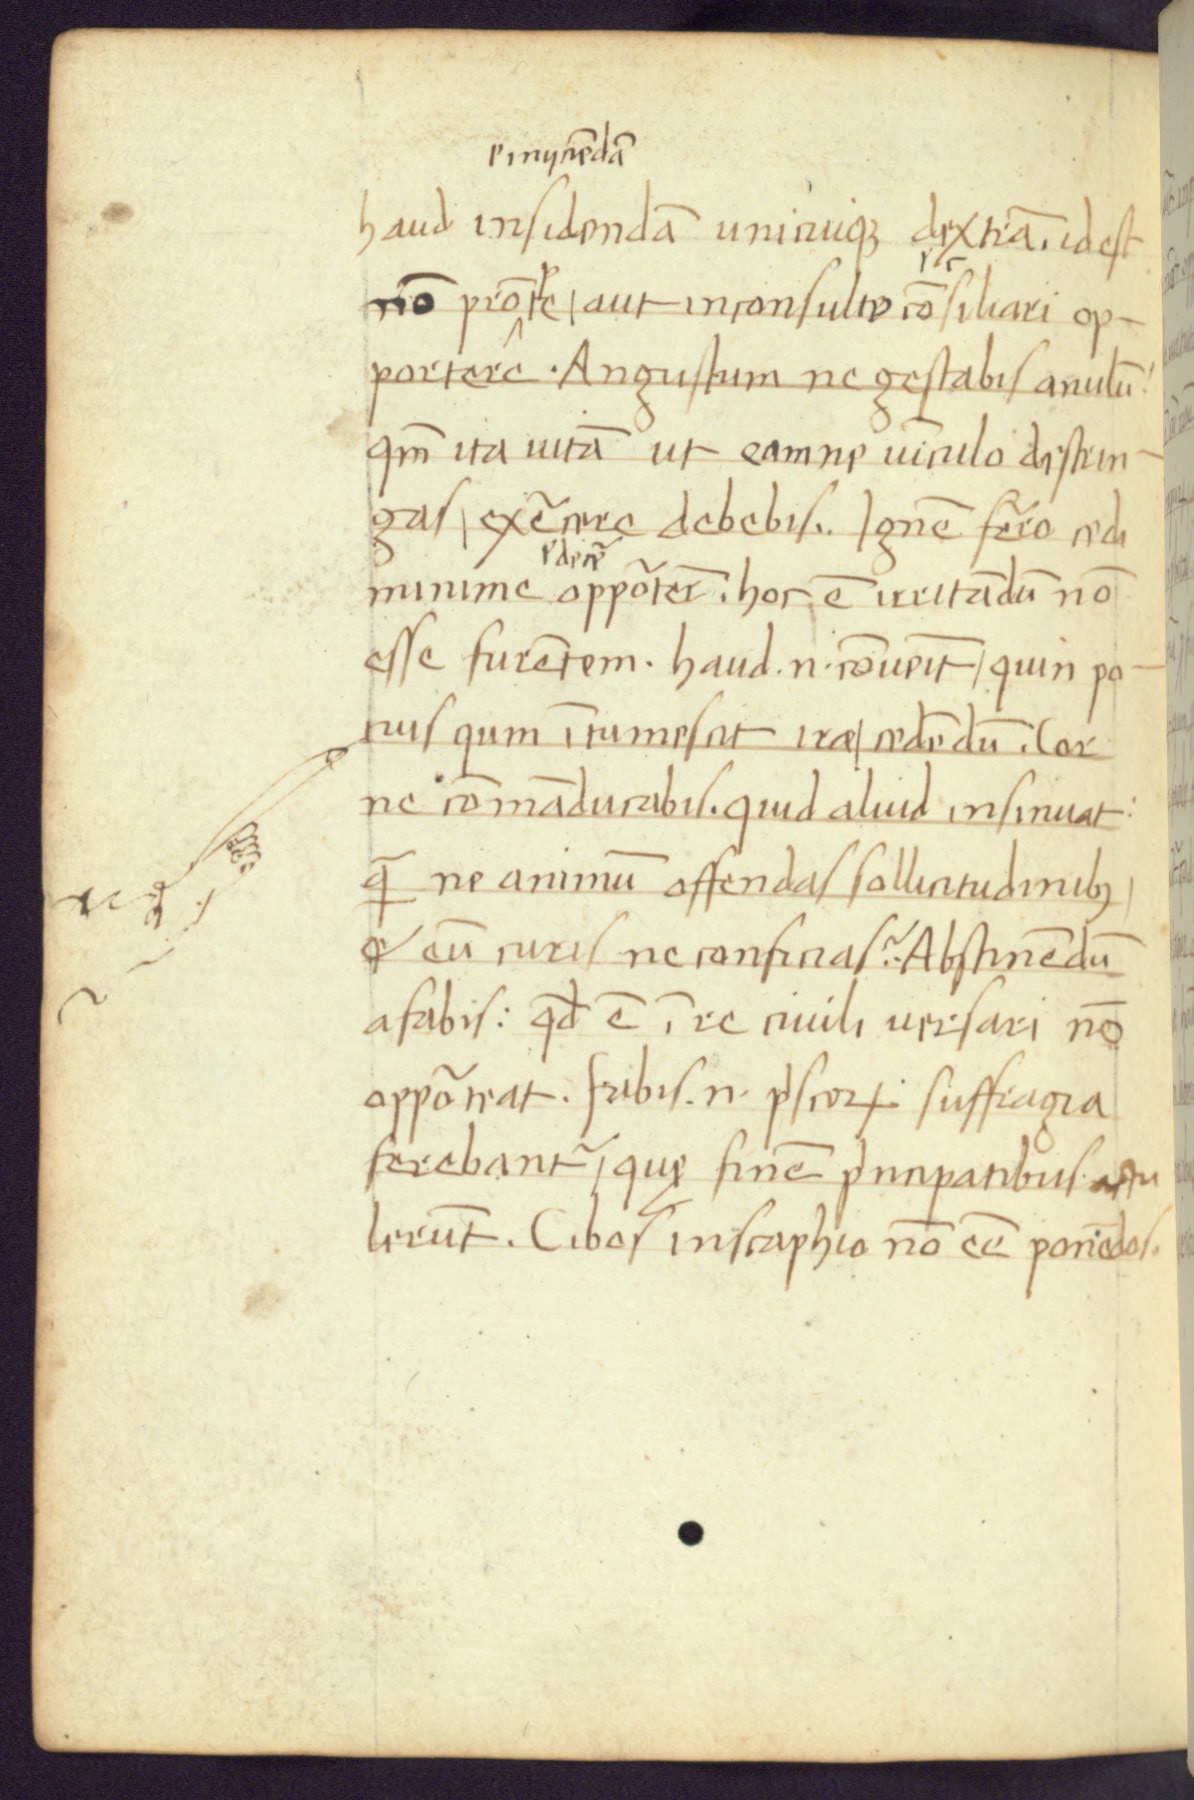 iniiciēdā
haud insidendā unicuiqꝫ dextrā. id est
nō prōpte, aut inconsulto cōsiliari op-
portere. Angustum ne gestabis anulū:
qm̄ ita uitā ut eam ne uīculo distrin-
gas, exērcere debebis. Ignē fērro cedi
decē
minime oppōter̄. hoc ē irritādū nō
esse furētem. haud .n. cōuenit, quin po-
tius qum ītumescit iræ, cedēdū. Cor
ne cōmāducabis. quid aliud insinuat:
ꝙ̄ ne animū offendas sollicitudinibꝫ,
& eū curis ne conficias? Abstinēdū
a fabis: qđ ē ī re ciuili uersari nō
oppōteat. fabis .n. pͥscoꝝ suffragia
ferebant̄, quę finē pͥncipatibus attu
lerūt. Cibos in scaphio nō eē ponēdos.